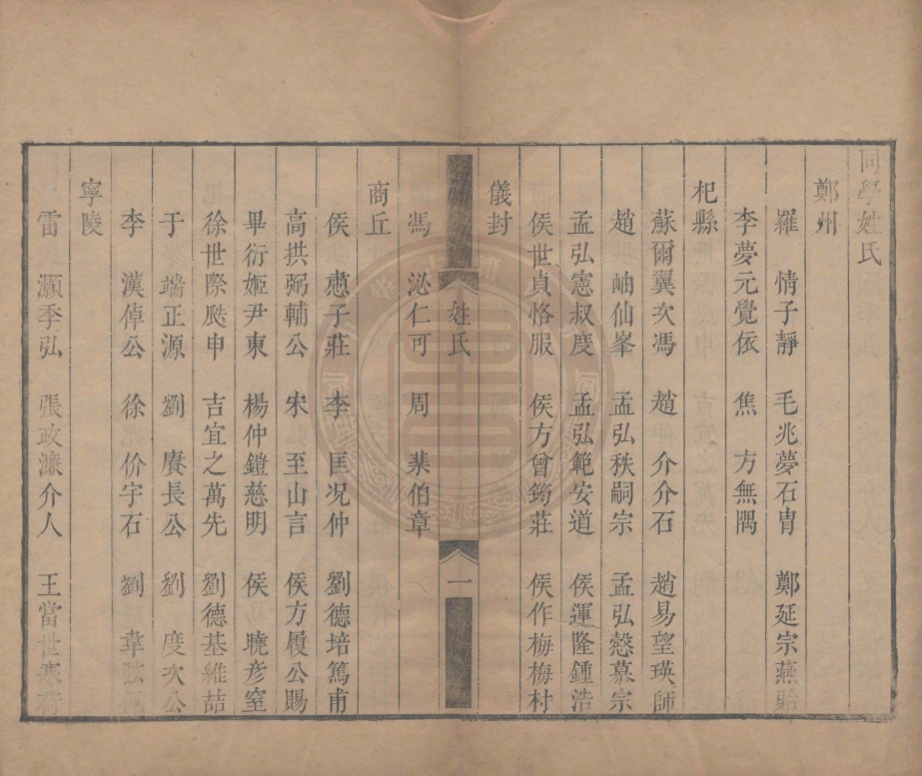 同學姓氏
鄭州
羅 情子靜 毛兆夢石冑 鄭延宗燕貽
李夢元覺依 焦 方無隅
杞縣
蘇爾翼次馮 趙 介介石 趙易望瑛師
趙 岫仙峯 孟弘秩嗣宗 孟弘慤慕宗
孟弘憲叔度 孟弘範安道 侯運隆鍾浩
侯世貞恪服 侯方曾筠莊 侯作梅梅村
儀封
馮 泌仁可 周 棐伯章
姓氏
一
商丘
侯 憓子莊 李 匡況仲 劉德培篤甫
高拱弼輔公 宋 至山言 侯方履公賜
畢衍姬尹東 楊仲鎧慈明 侯 曉彥室
徐世際颷申 吉宜之萬先 劉德基維喆
于 端正源 劉 賡長公 劉 度次公
李 漢倬公 徐 价宇石 劉 韋
寧陵
雷 灝季弘 張政濂介人 王當世